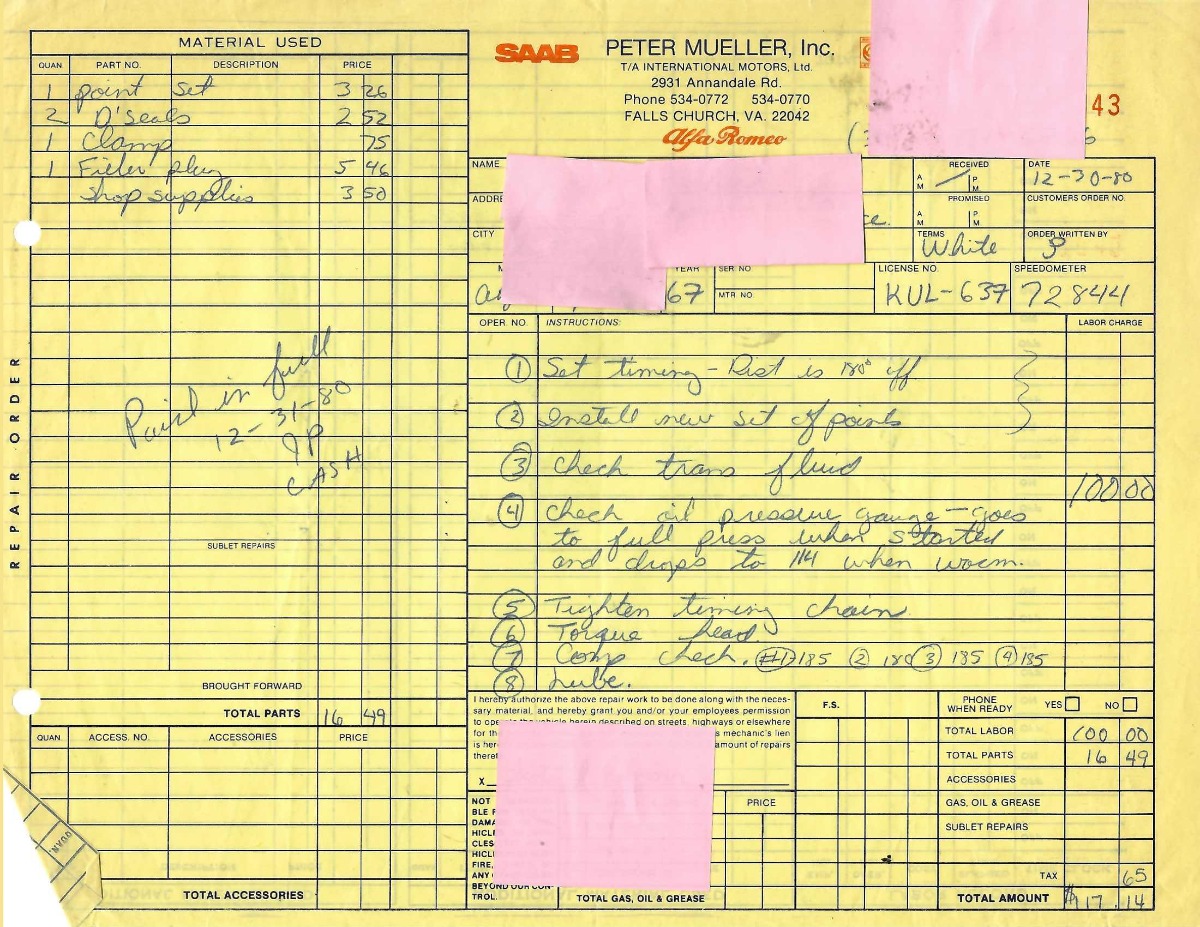 MATERIAL USED
QUAN. PART NO. DESCRIPTION PRICE
1 point set 3 26
2 D'seals 2 52
1 Clamp 75
1 Filler plug 5 46
Shop supplies 3 50
Paid in full
12-31-80
JP
CASH
REPAIR ORDER
SUBLET REPAIRS
BROUGHT FORWARD
TOTAL PARTS 16 49
QUAN. ACCESS. NO. ACCESSORIES PRICE
TOTAL ACCESSORIES
QUAN.
SAAB
PETER MUELLER, Inc.
T/A INTERNATIONAL MOTORS, Ltd.
2931 Annandale Rd.
Phone 534-0772 534-0770
FALLS CHURCH, VA. 22042
Alfa Romeo
43
NAME RECEIVED DATE
A M P M 12-30-80
ADDRE PROMISED CUSTOMERS ORDER NO.
A M P M
CITY TERMS ORDER WRITTEN BY
White
YEAR SER NO LICENSE NO. SPEEDOMETER
67 MTR NO. KUL-637 72844
OPER. NO. INSTRUCTIONS: LABOR CHARGE
1 Set timing - Dist is 180° off
2 Install new set of points
3 Check trans fluid
100 00
4 Check oil pressure gauge - goes
to full press when started
and drops to 1/4 when warm.
5 Tighten timing chain
6 Torque head
7 Comp check. #1 185 2 180 3 185 4 185
8 Lube.
I hereby authorize the above repair work to be done along with the neces-
sary material, and hereby grant you and/or your employees permission
to operate the vehicle herein described on streets, highways or elsewhere
for th s mechanic's lien
is here amount of repairs
theret
X
NOT
BLE F
DAMA
HICLE
CLES
HICL
FIRE,
ANY
BEYOND OUR CON-
TROL.
PRICE
TOTAL GAS, OIL & GREASE
F.S.
PHONE WHEN READY YES NO
TOTAL LABOR 100 00
TOTAL PARTS 16 49
ACCESSORIES
GAS, OIL & GREASE
SUBLET REPAIRS
TAX 65
TOTAL AMOUNT $117.14